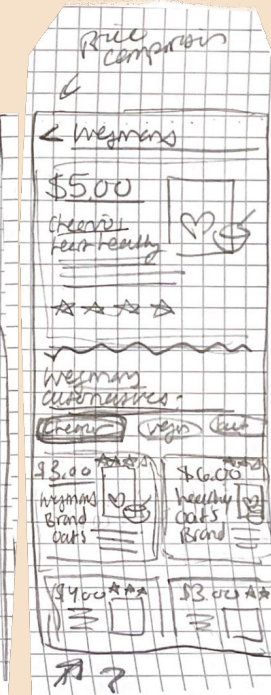 Price
comparison
< Wegmans
$5.00
Cheerios
heart healthy
Wegmans
alternatives:
Vegan
$3.00
Wegmans
Brand
oats
$6.00
healthy
oats
Brand
$4.00
$3.00
?